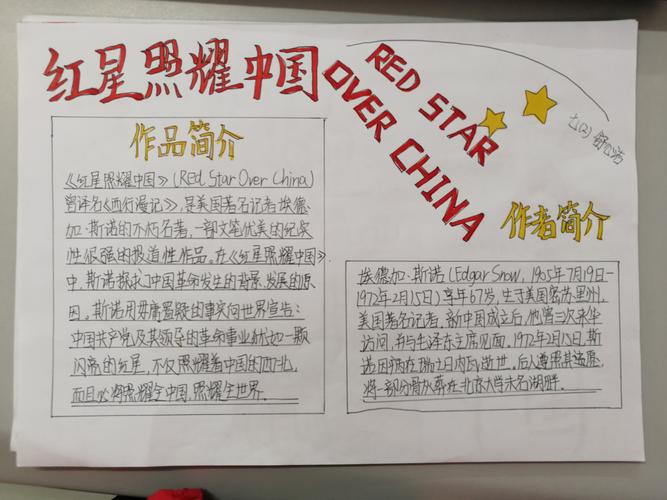 红星照耀中国
RED STAR
OVER CHINA
作品简介
《红星照耀中国》(Red Star Over China)
曾译名《西行漫记》,是美国著名记者埃德
加·斯诺的不朽名著,一部文笔优美的纪实
性很强的报道性作品。在《红星照耀中国》
中,斯诺探求了中国革命发生的背景,发展的原
因。斯诺用毋庸置疑的事实向世界宣告:
中国共产党及其领导的革命事业犹如一颗
闪亮的红星,不仅照耀着中国的西北,
而且必将照耀全中国,照耀全世界.
七(2)
作者简介
埃德加·斯诺(Edgar Snow,1905年7月19日—
1972年2月15日)享年67岁,生于美国密苏里州,
美国著名记者,新中国成立后,他曾三次来华
访问,并与毛泽东主席见面,1972年2月15日,斯
诺因病在瑞士日内瓦逝世。后人遵照其遗愿,
将一部分骨灰葬在北京大学未名湖畔.